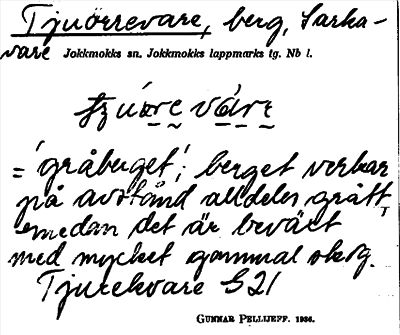 Tjuörrevare, berg, Sarka-
vare Jokkmokks sn. Jokkmokks lappmarks tg. Nb l.
= 'gråberget'; berget verkar
på avstånd alldeles grått,
medan det är beväxt
med mycket gammal skog.
Tjurekvare G21
GUNNAR PELLIJEFF. 1936.